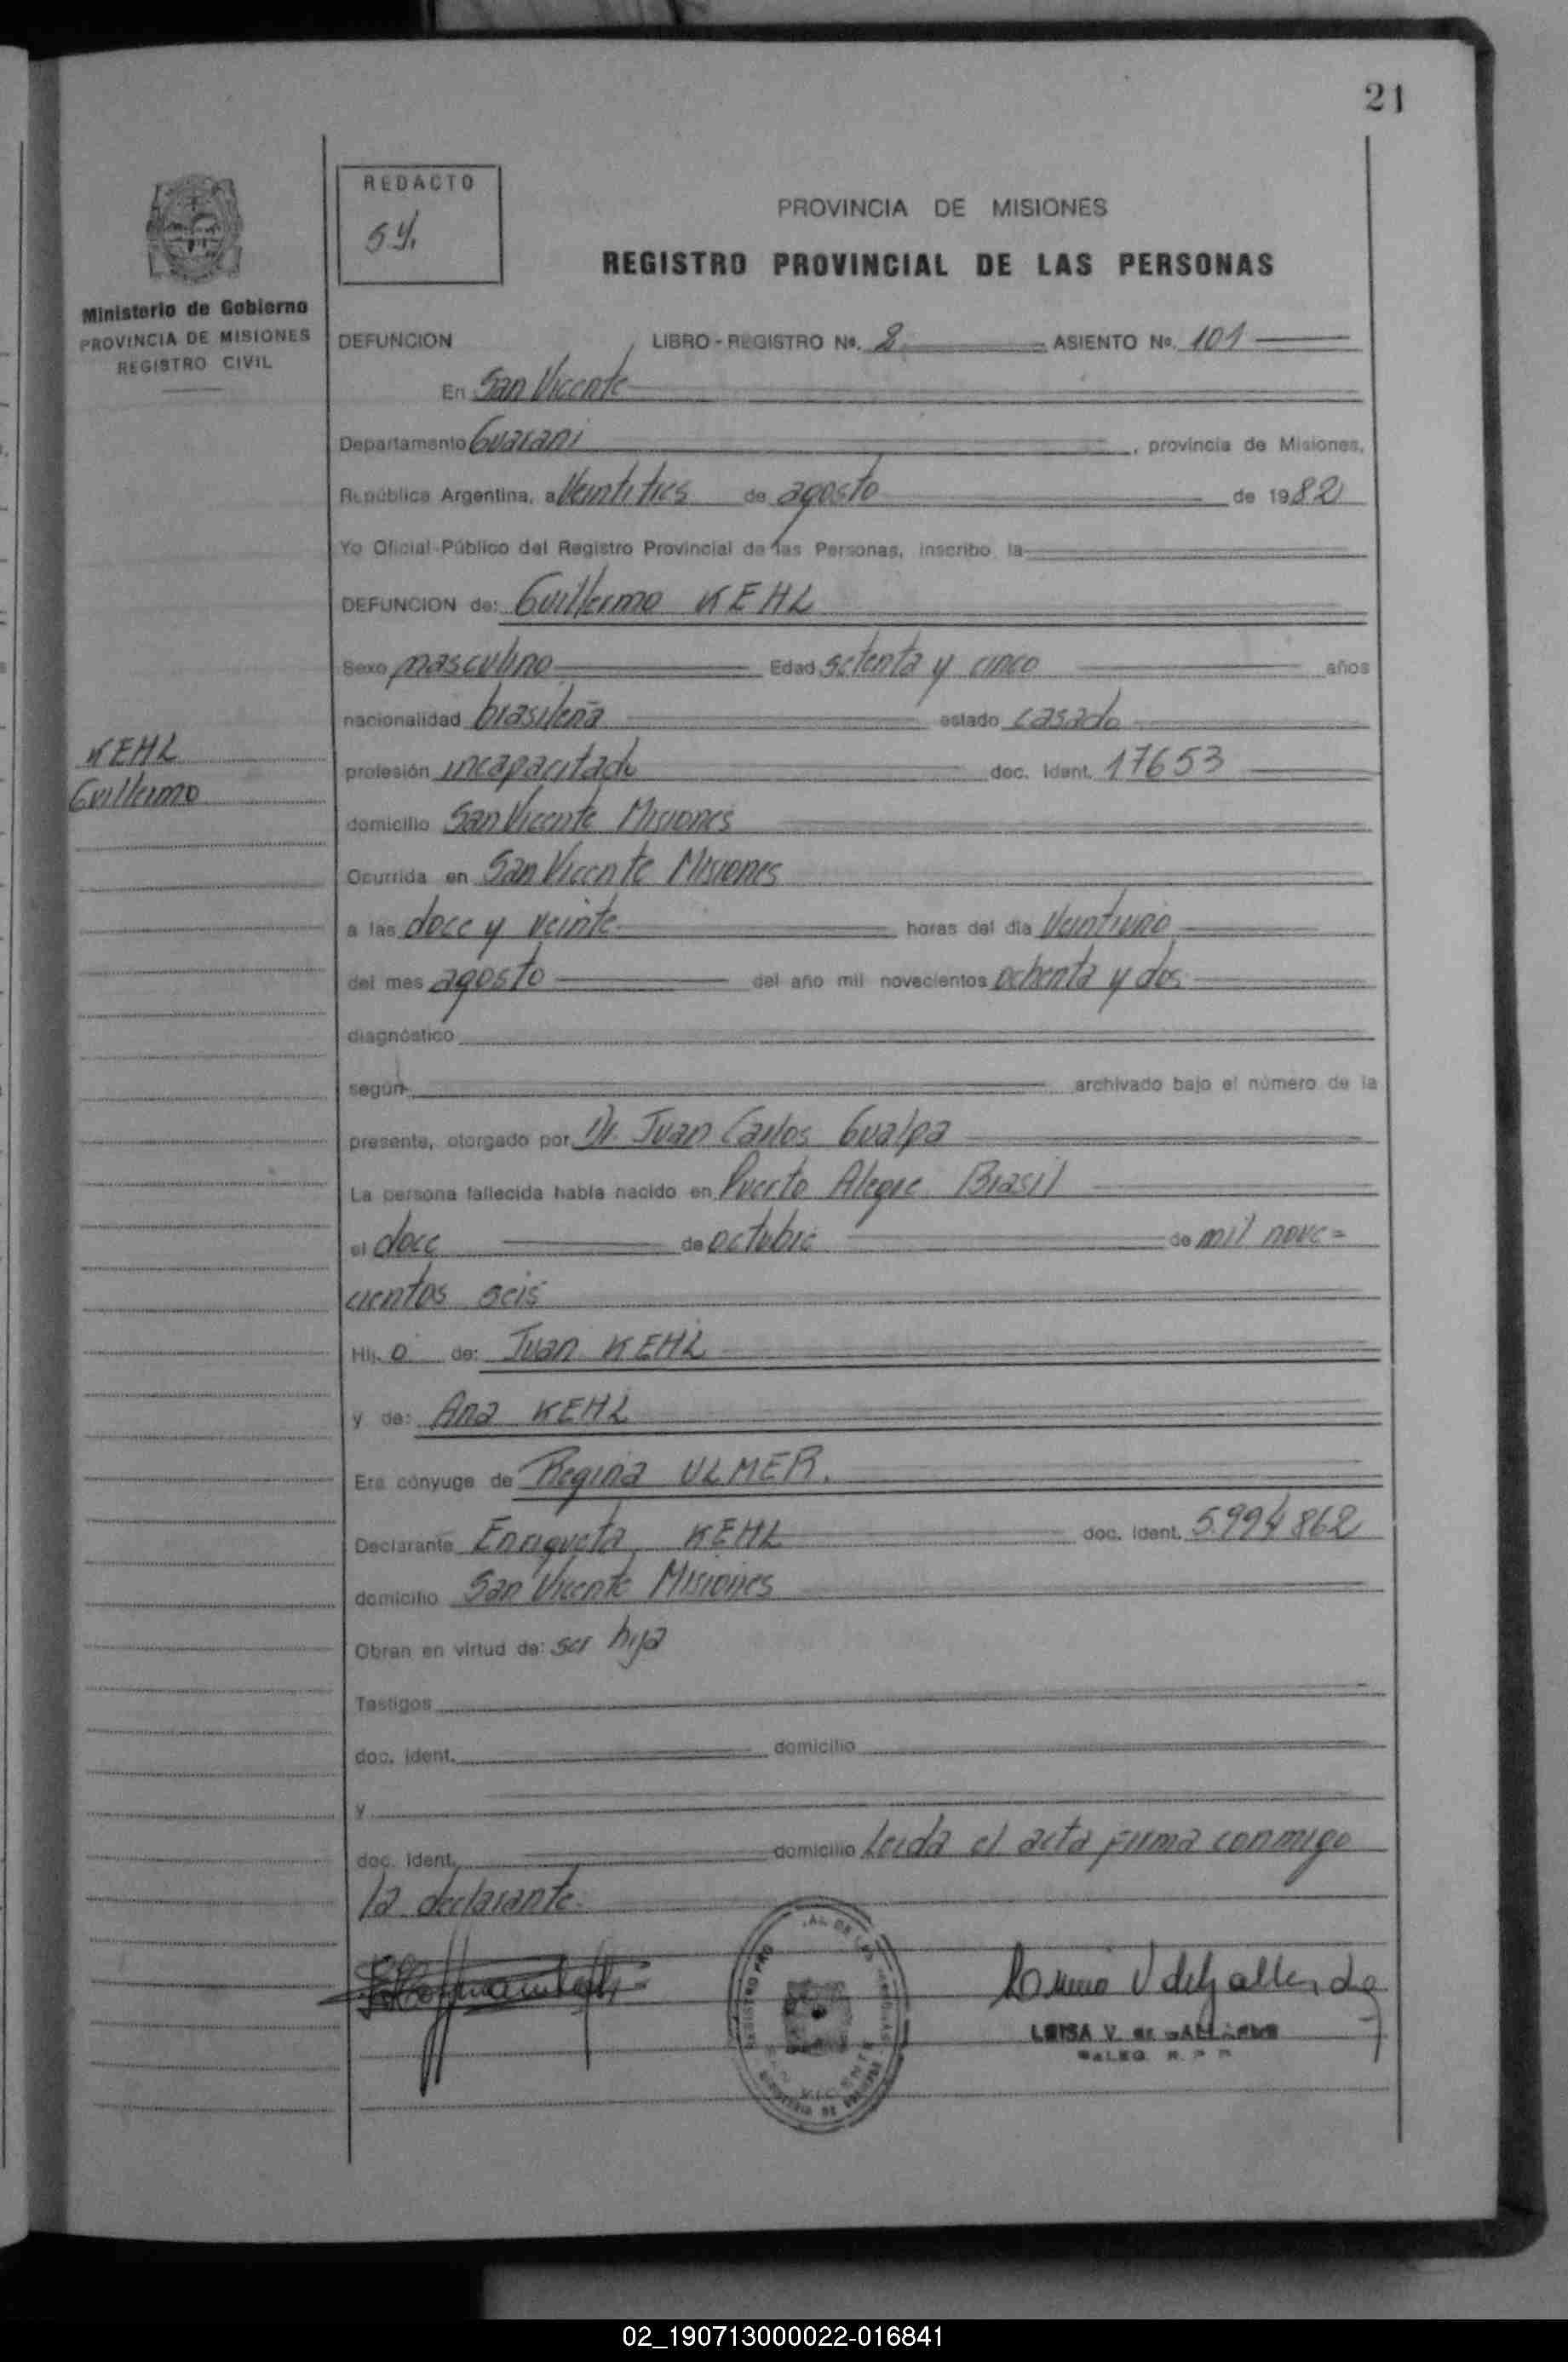 21
REDACTO
PROVINCIA DE MISIONES
REGISTRO PROVINCIAL DE LAS PERSONAS
Ministerio de Gobierno
PROVINCIA DE MISIONES
REGISTRO CIVIL
DEFUNCION LIBRO - REGISTRO No. 2 ASIENTO No. 101
En San Vicente
Departamento Guarani, provincia de Misiones,
República Argentina, a Veintitres de agosto de 1982
Yo Oficial Público del Registro Provincial de las Personas, inscribo la
DEFUNCION de: Guillermo KEHL
Sexo masculino Edad setenta y cinco años
nacionalidad brasileña estado casado
KEHL
Guillermo
profesión incapacitado doc. Ident. 17653
domicilio San Vicente Misiones
Ocurrida en San Vicente Misiones
a las doce y veinte horas del día Veintiuno
del mes agosto del año mil novecientos ochenta y dos
diagnóstico
según archivado bajo el número de la
presente, otorgado por Dr. Juan Carlos Gualpa
La persona fallecida había nacido en Puerto Alegre Brasil
el doce de octubre de mil nove=
cientos seis
Hij o de: Juan KEHL
y de: Ana KEHL
Era cónyuge de Regina ULMER.
Declarante Enriqueta KEHL doc. Ident. 5.994862
domicilio San Vicente Misiones
Obran en virtud de: ser hija
Testigos
doc. Ident. domicilio
y
doc. Ident. domicilio Leida el acta firma conmigo
la declarante.
LUISA V. de
02_190713000022-016841